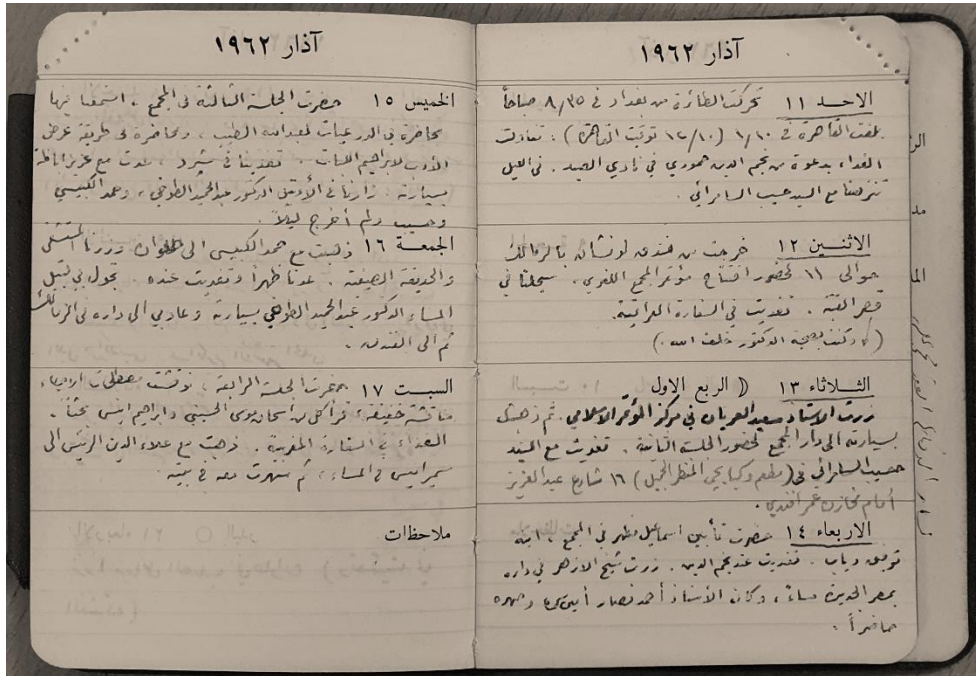 آذار ١٩٦٢
الاحد ١١ تحركت الطائرة من بغداد في ٨/٣٥ صباحاً
بلغت القاهرة في ١/١٠ (١٢/١٠ توقيت القاهرة). تناولت
الغداء بدعوة من نجم الدين حمودي في نادي الصيد. في الليل
تنزهنا مع السيد حسيب السامرائي.
الاثنين ١٢ خرجت من فندق لونشان بالزمالك
حوالى ١١ لحضور افتتاح مؤتمر المجمع اللغوي. سجلنا في
قصر القبة. تغديت في السفارة العراقية.
(وكنت بصحبة الدكتور خلف الله.)
الثلاثاء ١٣ ☾ الربع الاول
زرت الاستاذ سعيد العريان في مركز المؤتمر الاسلامي. ثم ذهبت
بسيارته الى دار المجمع لحضور الجلسة الثانية. تغديت مع السيد
حسيب السامرائي في (مطعم وكبابجي المنظر الجميل) ١٦ شارع عبدالعزيز
أمام مخازن عمر افندي.
الاربعاء ١٤ حضرت تأبين اسماعيل مظهر في المجمع، ابنه
توفيق دياب. تغديت عند نجم الدين. زرت شيخ الازهر في داره
بمصر الجديدة مساءً، وكان الأستاذ أحمد نصار وصهره
حاضراً.
آذار ١٩٦٢
الخميس ١٥ حضرت الجلسة الثالثة في المجمع، استمعنا فيها
محاضرة في الدرعيات لعبدالله الطيب، ومحاضرة في طريقة عرض
الأدب لابراهيم اللبان. تغدينا في شبرد، عدت مع عزيز اباظة
بسيارته. زارنا في الأوتيل الدكتور عبدالحميد الطوخي، وحمد الكبيسي
وحسيب ولم أخرج ليلاً.
الجمعة ١٦ ذهبت مع حمد الكبيسي الى حلوان وزرنا المستشفى
والحديقة. عدنا ظهراً وتغديت عنده. تجول بي قبل
المساء الدكتور عبدالحميد الطوخي بسيارته وعاد بي الى داره في الزمالك
ثم الى الفندق.
السبت ١٧ حضرت الجلسة الرابعة، نوقشت مصطلحات
مناقشة خفيفة، قرأ كل من اسحاق موسى الحسيني وابراهيم انيس بحثاً.
الغداء في السفارة المغربية. ذهبت مع علاء الدين الريس الى
سميراميس في المساء، ثم سهرت معه في بيته
ملاحظات